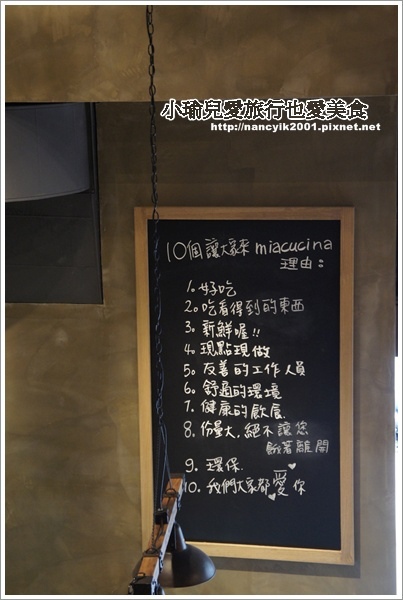 小瑜兒愛旅行也愛美食
http://nancyik2001.pixnet.net
10個讓大家來 miacucina
理由:
1. 好吃
2. 吃看得到的東西
3. 新鮮喔!!
4. 現點現做
5. 友善的工作人員
6. 舒適的環境
7. 健康的飲食
8. 份量大, 絕不讓您
餓著離開
9. 環保.
10. 我們大家都愛你